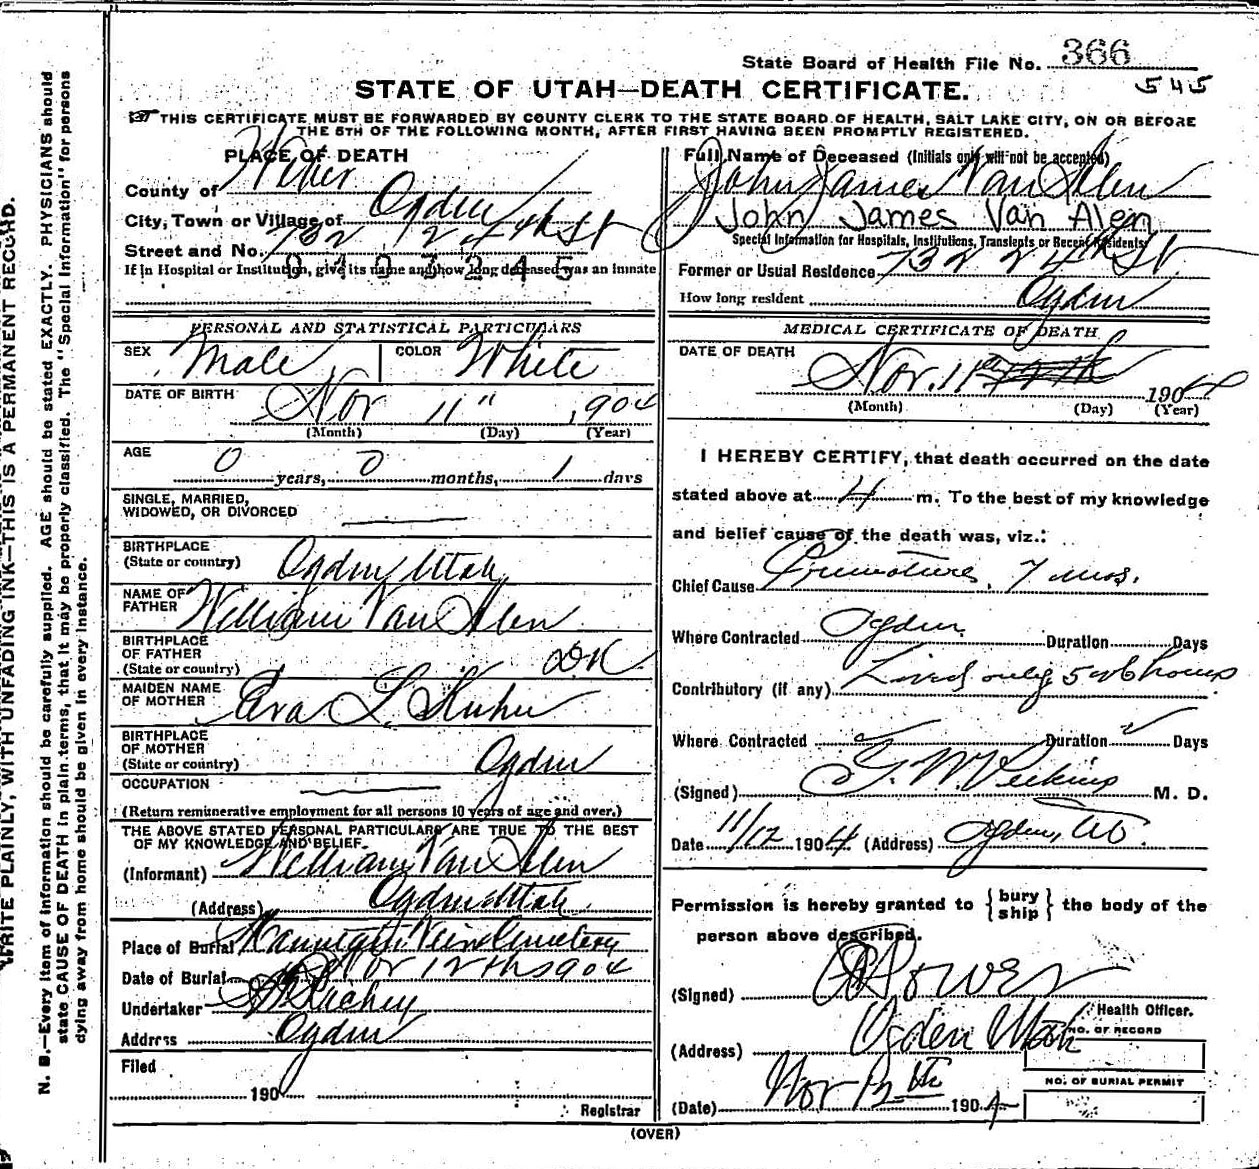 State Board of Health File No. 366
545
STATE OF UTAH—DEATH CERTIFICATE.
THIS CERTIFICATE MUST BE FORWARDED BY COUNTY CLERK TO THE STATE BOARD OF HEALTH, SALT LAKE CITY, ON OR BEFORE
THE 5TH OF THE FOLLOWING MONTH, AFTER FIRST HAVING BEEN PROMPTLY REGISTERED.
PLACE OF DEATH
County of Weber
City, Town or Village of Ogden
Street and No. 732 24th St
If in Hospital or Institution, give its name and how long deceased was an inmate
Full Name of Deceased (Initials only will not be accepted)
John James Van Alen
John James Van Alen
Special Information for Hospitals, Institutions, Transients or Recent Residents
Former or Usual Residence 732 24th St
How long resident Ogden
PERSONAL AND STATISTICAL PARTICULARS
SEX Male COLOR White
DATE OF BIRTH Nov 11" 1904
(Month) (Day) (Year)
AGE
0 years, 0 months, 1 days
SINGLE, MARRIED,
WIDOWED, OR DIVORCED
BIRTHPLACE
(State or country) Ogden Utah
NAME OF
FATHER William Van Alen
BIRTHPLACE
OF FATHER
(State or country) DK
MAIDEN NAME
OF MOTHER Eva L. Kuhn
BIRTHPLACE
OF MOTHER
(State or country) Ogden
OCCUPATION
(Return remunerative employment for all persons 10 years of age and over.)
THE ABOVE STATED PERSONAL PARTICULARS ARE TRUE TO THE BEST
OF MY KNOWLEDGE AND BELIEF.
(Informant) William Van Alen
(Address) Ogden Utah
Place of Burial Cemetery
Date of Burial Nov 12th 1904
Undertaker Richey
Address Ogden
Filed
190
Registrar
MEDICAL CERTIFICATE OF DEATH
DATE OF DEATH
Nov. 11 1904
(Month) (Day) (Year)
I HEREBY CERTIFY, that death occurred on the date
stated above at 4 m. To the best of my knowledge
and belief cause of the death was, viz.:
Chief Cause Premature, 7 mos.
Where Contracted Ogden Duration Days
Contributory (if any) Lived only 5 or 6 hours
Where Contracted Duration Days
(Signed) G. W. Perkins M. D.
Date 11/12 1904 (Address) Ogden, U
Permission is hereby granted to {bury
ship} the body of the
person above described.
(Signed)
Health Officer.
(Address) Ogden Utah
NO. OF RECORD
NO. OF BURIAL PERMIT
(Date) Nov 12th 1904
(OVER)
WRITE PLAINLY, WITH UNFADING INK—THIS IS A PERMANENT RECORD.
N. B.—Every item of information should be carefully supplied. AGE should be stated EXACTLY. PHYSICIANS should
state CAUSE OF DEATH in plain terms, that it may be properly classified. The "Special Information" for persons
dying away from home should be given in every instance.